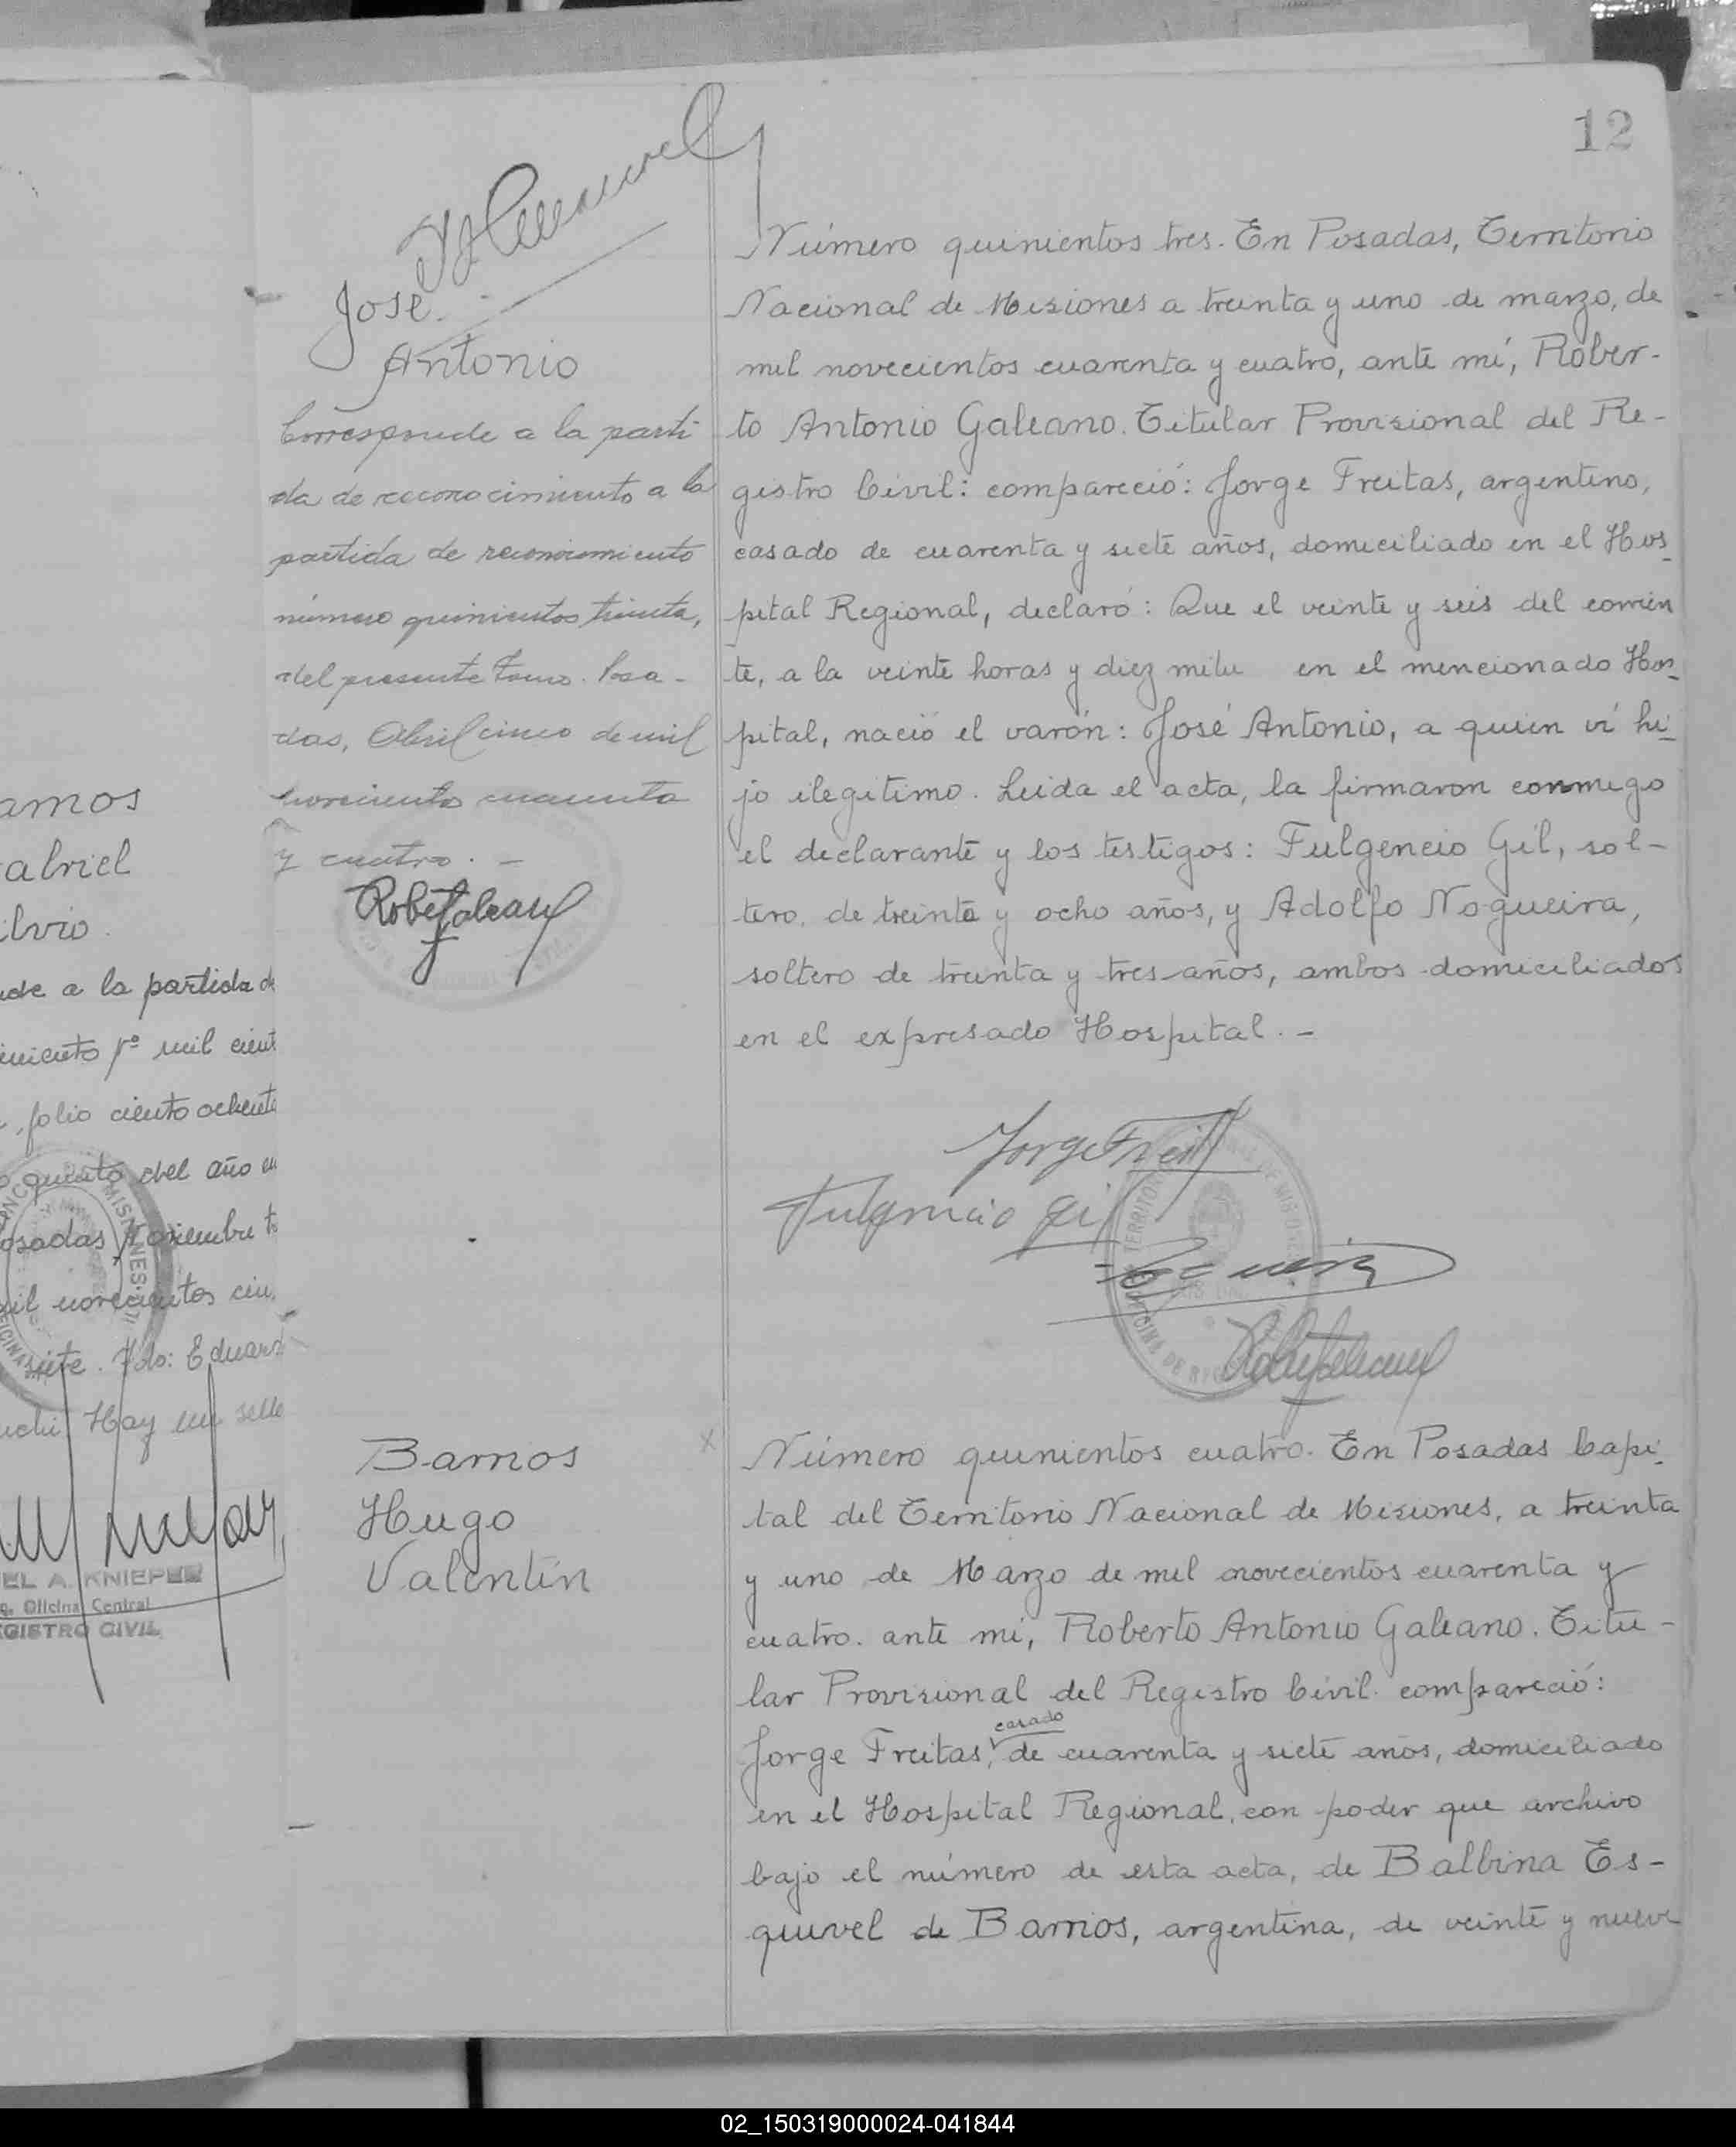 12
José
Antonio
Corresponde a la parti
da de reconocimiento a la
partida de reconocimiento
número quinientos treinta,
del presente tomo. Posa-
das, Abril cinco de mil
novecientos cuarenta
y cuatro. -
Número quinientos tres. En Posadas, Territorio
Nacional de Misiones a treinta y uno de marzo, de
mil novecientos cuarenta y cuatro, ante mí, Rober-
to Antonio Galeano. Titular Provisional del Re-
gistro Civil: compareció: Jorge Freitas, argentino,
casado de cuarenta y siete años, domiciliado en el Hos_
pital Regional, declaró: Que el veinte y seis del corrien
te, a la veinte horas y diez mitu en el mencionado Hos_
pital, nació el varón: José Antonio, a quien ví hi_
jo ilegitimo. Leida el acta, la firmaron conmigo
el declarante y los testigos: Fulgencio Gil, sol-
tero, de treinta y ocho años, y Adolfo Nogueira,
soltero de treinta y tres años, ambos domiciliados
en el expresado Hospital. -
Jorge Freit
Fulgencio Gil
amos
abriel
ilvio.
nde a la partida de
imiento nº mil cient
folio ciento ochenta
quinto del año
osadas Noviembre
mil novecientos cin.
siete. Fdo: Eduard
Hay un sello
EL A. KNIEPER
Oficina Central
GISTRO CIVIL
Barrios
Hugo
Valentín
x
Número quinientos cuatro. En Posadas Capi_
tal del Territorio Nacional de Misiones, a treinta
y uno de Marzo de mil novecientos cuarenta y
cuatro. ante mi, Roberto Antonio Galeano. Titu-
lar Provisional del Registro Civil. compareció:
casado
Jorge Freitas, de cuarenta y siete años, domiciliado
en el Hospital Regional, con poder que archivo
bajo el número de esta acta, de Balbina Es-
quivel de Barrios, argentina, de veinte y nueve
02_150319000024-041844